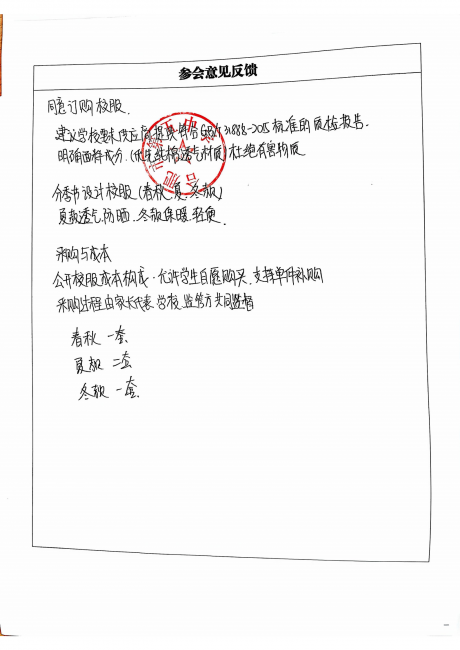 参会意见反馈
同意订购校服.
建议学校要求供应商提供符合GB/T 31888-2015标准的质检报告.
明确面料成分.(优先纯棉透气材质)杜绝有害物质
分季节设计校服(春秋.夏.冬款)
夏款透气防晒.冬款保暖.轻便.
采购与成本
公开校服成本构成.允许学生自愿购买.支持单件补购
采购过程由家长代表.学校.监管方共同监督
春秋 一套.
夏款 二套
冬款 一套.